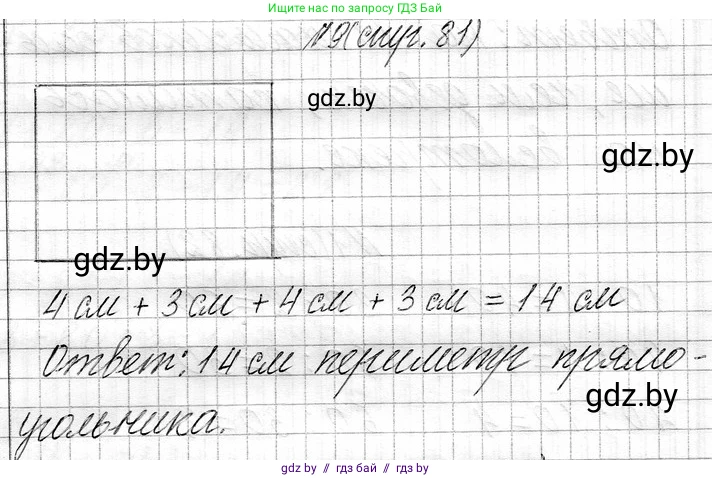 Ищите нас по запросу в поиске ГДЗ БАЙ
№9(стр. 81)
gdz.by
gdz.by
gdz.by
4 см + 3 см + 4 см + 3 см = 14 см
Ответ: 14 см периметр прямо-
gdz.by
угольника.
gdz.by // гдз бай // gdz.by